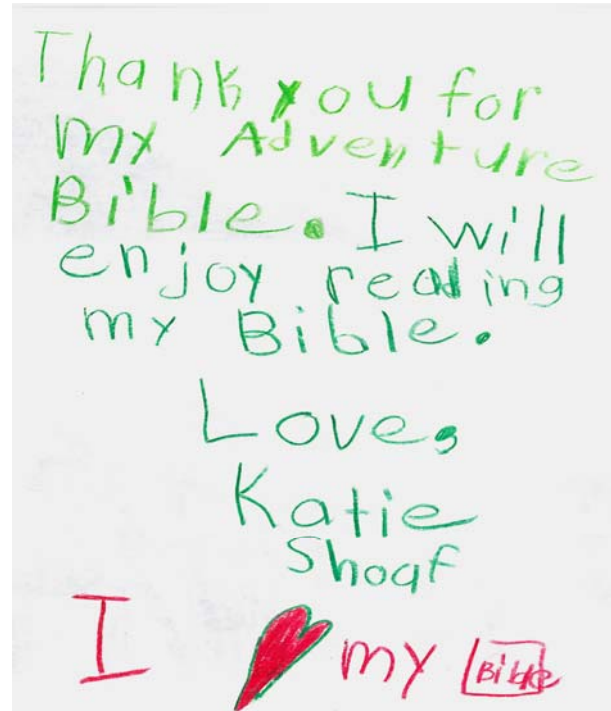 Thank you for
my Adventure
Bible. I will
enjoy reading
my Bible.
Love,
Katie
Shoaf
I my Bible